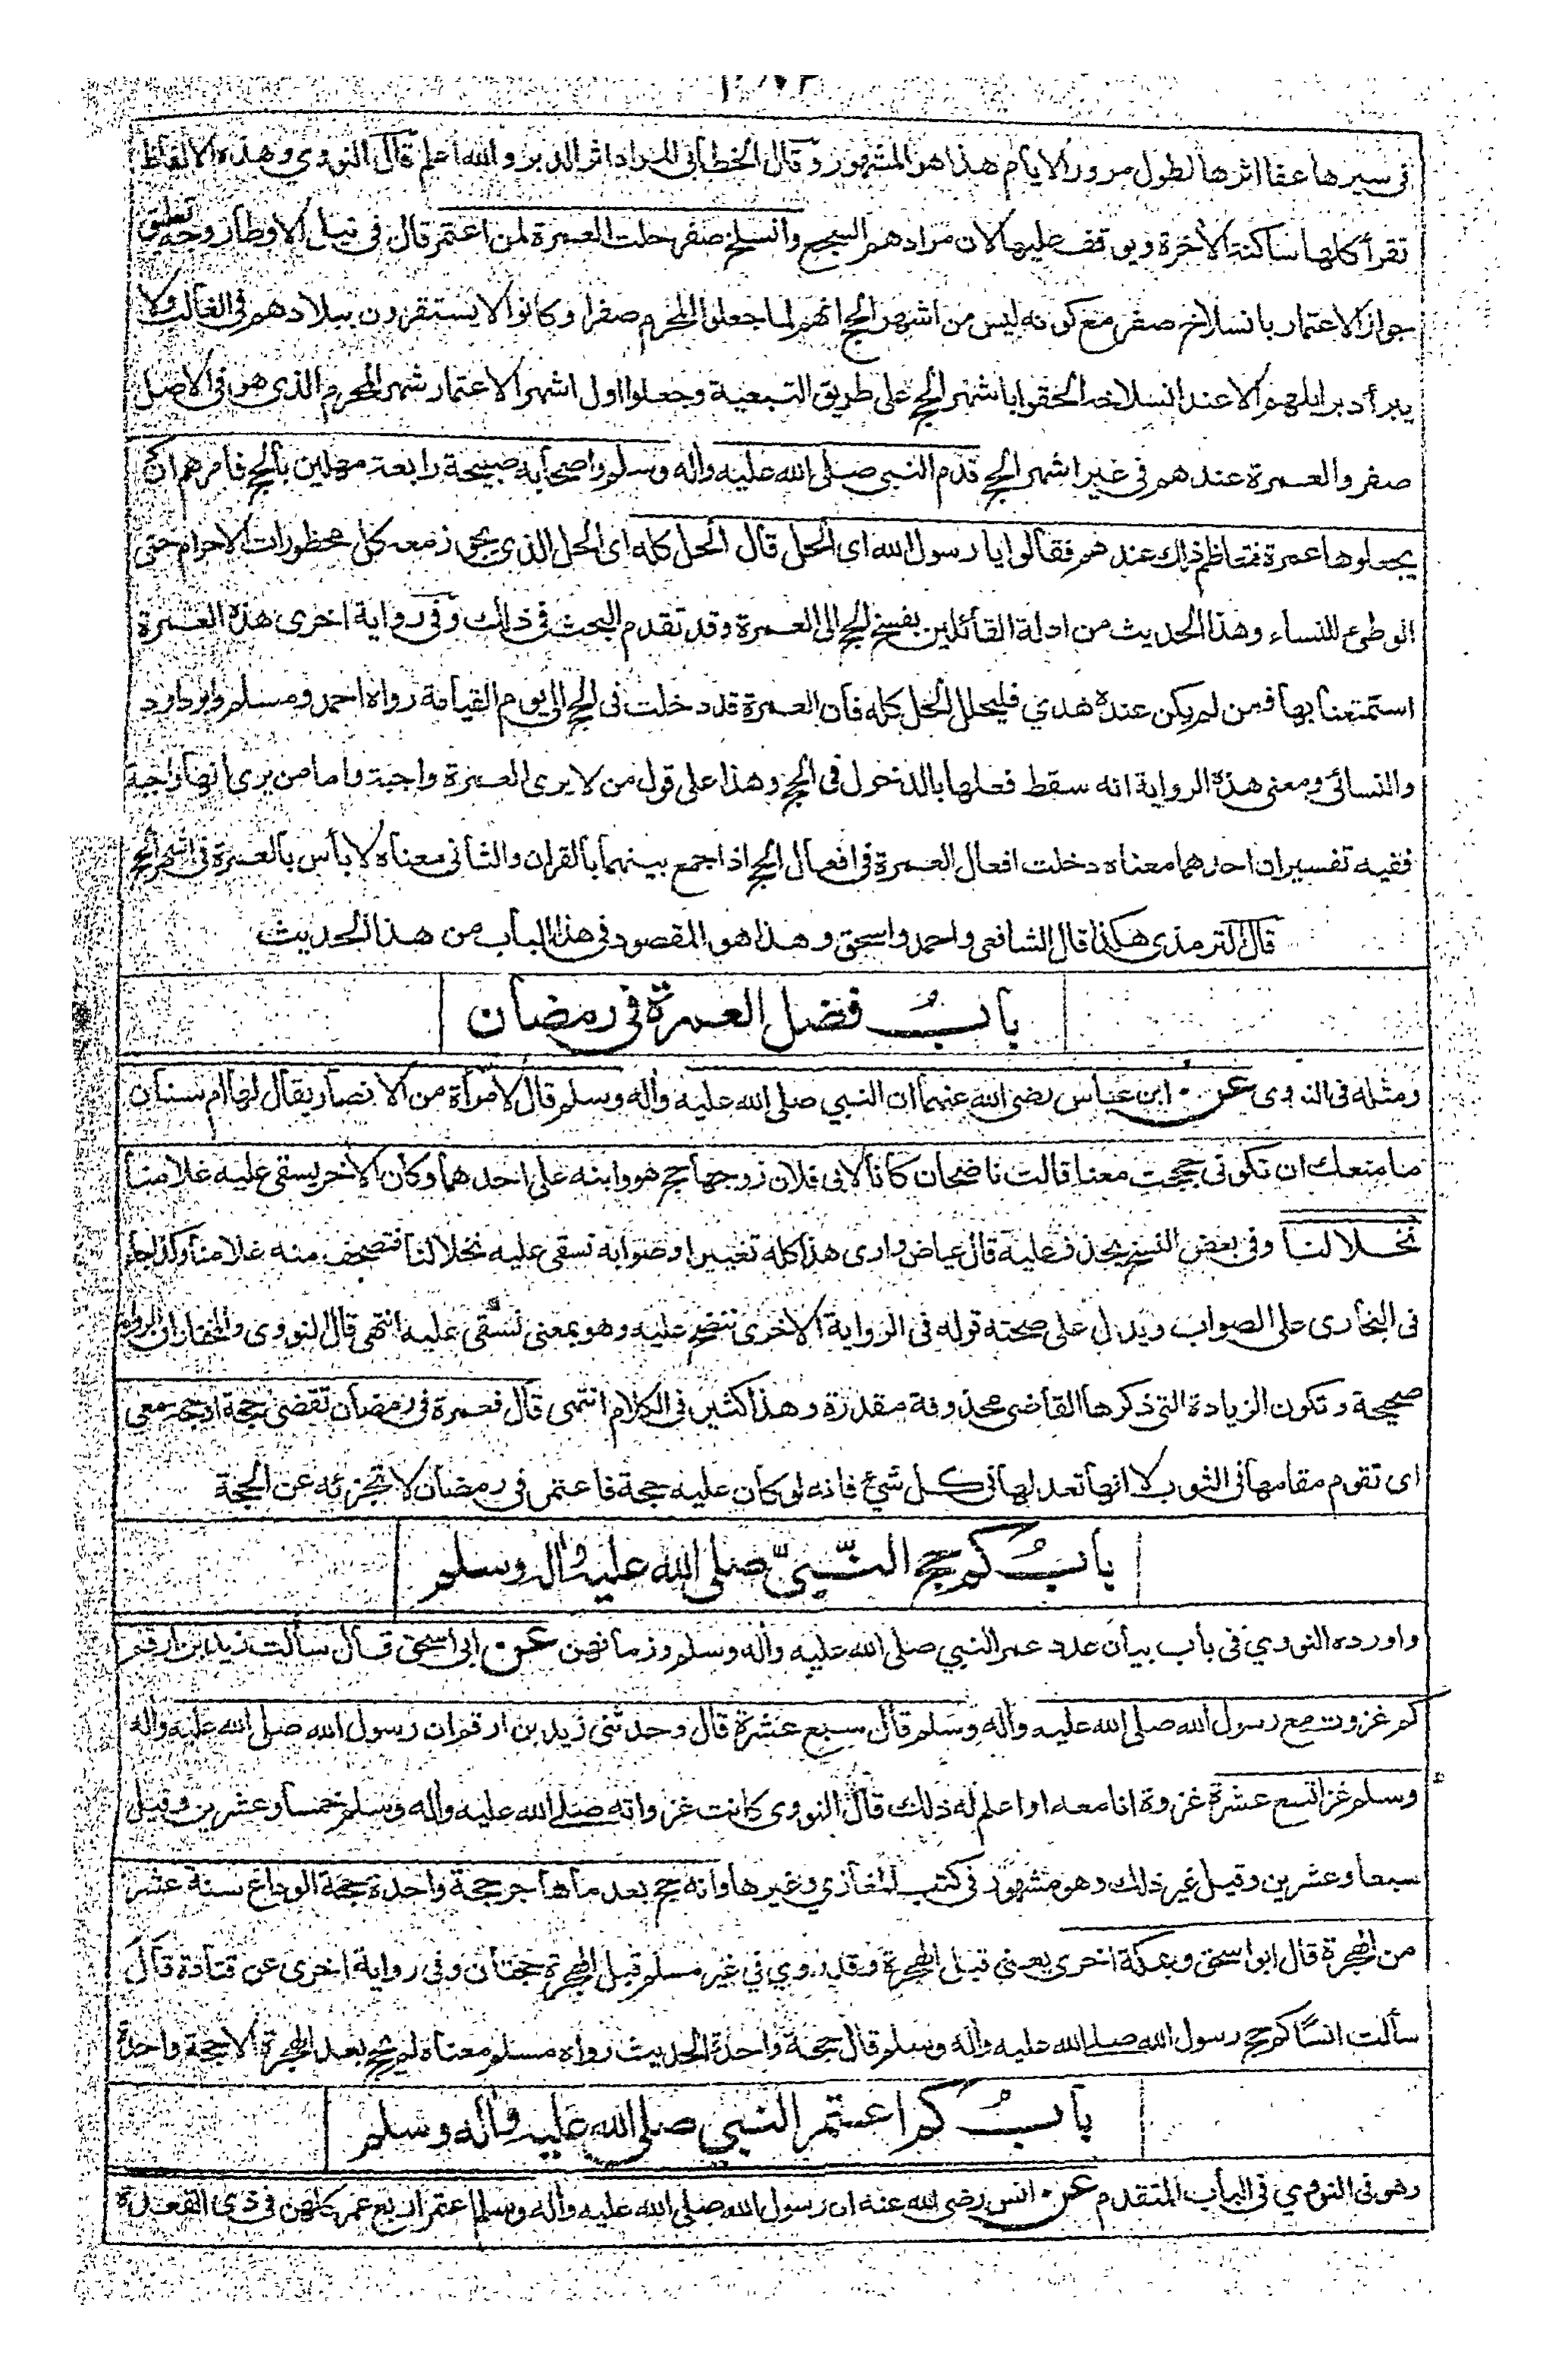 فى سيرها عفا اثرها لطول مرور الايام هذا هو المشهور وقال الخطابى المراد اثر الدبر والله اعلم قال النووي وهذه الالفاظ
تقرأ كلها ساكنة الأخرة ويوقف عليها لان مرادهم السجع وانسلخ صفر حلت العمرة لمن اعتمر قال فى نيل الاوطار وجه تعلق
جواز الاعتمار بانسلاخ صفر مع كونه ليس من اشهر الحج انهم لما جعلوا المحرم صفرا وكانوا لا يستقرون ببلادهم فى الغالب ولا
يبرأ دبر ابلهم الا عند انسلاخه الحقوا باشهر الحج على طريق التبعية وجعلوا اول اشهر الاعتمار شهر المحرم الذى هو فى الاصل
صفر والعمرة عندهم فى غير اشهر الحج قدم النبى صلى الله عليه واله وسلم واصحابه صبيحة رابعة مهلين بالحج فامرهم ان
يجعلوها عمرة فتعاظم ذلك عندهم فقالوا يا رسول الله اى الحل قال الحل كله اى الحل الذي يجوز معه كل محظورات الاحرام حتى
الوطئ للنساء وهذا الحديث من ادلة القائلين بفسخ الحج الى العمرة وقد تقدم البحث فى ذلك وفى رواية اخرى هذه العمرة
استمتعنا بها فمن لم يكن عنده هدي فليحلل الحل كله فان العمرة قد دخلت فى الحج الى يوم القيامة رواه احمد ومسلم وابوداود
والنسائى ومعنى هذه الرواية انه سقط فعلها بالدخول فى الحج وهذا على قول من لا يرى العمرة واجبة واما من يرى انها واجبة
ففيه تفسيران احدهما معناه دخلت افعال العمرة فى افعال الحج اذا جمع بينهما بالقران والثانى معناه لا بأس بالعمرة فى اشهر الحج
قال الترمذى هكذا قال الشافعى واحمد واسحق وهذا هو المقصود فى هذا الباب من هذا الحديث
باب فضل العمرة فى رمضان
ومثله فى النووى عن ابن عباس رضى الله عنهما ان النبي صلى الله عليه واله وسلم قال لامرأة من الانصار يقال لها ام سنان
ما منعك ان تكونى حججت معنا قالت ناضحان كانا لابى فلان زوجها حج هو وابنه على احدهما وكان الاخر يسقى عليه غلامنا
نخلا لنا وفى بعض النسخ بحذف عليه قال عياض وارى هذا كله تغييرا وصوابه نسقى عليه نخلا لنا فتصحف منه غلامنا وكذا جاء
فى البخارى على الصواب ويدل على صحته قوله فى الرواية الاخرى ننضح عليه وهو بمعنى نسقى عليه انتهى قال النووى والمختار ان الرواية
صحيحة وتكون الزيادة التى ذكرها القاضى محذوفة مقدرة وهذا كثير فى الكلام انتهى قال فعمرة فى رمضان تقضى حجة او حجة معى
اى تقوم مقامها فى الثواب لا انها تعدلها فى كل شئ فانه لو كان عليه حجة فاعتمر فى رمضان لا تجزئه عن الحجة
باب كم حج النبى صلى الله عليه واله وسلم
واورده النووي فى باب بيان عدد عمر النبي صلى الله عليه واله وسلم وزمانهن عن ابى اسحق قال سألت زيد بن ارقم
كم غزوت مع رسول الله صلى الله عليه واله وسلم قال سبع عشرة قال وحدثنى زيد بن ارقم ان رسول الله صلى الله عليه واله
وسلم غزا تسع عشرة غزوة انا معه او اعلم له ذلك قال النووى كانت غزواته صلى الله عليه واله وسلم خمسا وعشرين وقيل
سبعا وعشرين وقيل غير ذلك وهو مشهور فى كتب المغازي وغيرها وانه حج بعد ما هاجر حجة واحدة حجة الوداع سنة عشر
من الهجرة قال ابو اسحق وبمكة اخرى يعنى قبل الهجرة وقد روي في غير مسلم قبل الهجرة حجتان وفى رواية اخرى عن قتادة قال
سألت انسا كم حج رسول الله صلى الله عليه واله وسلم قال حجة واحدة الحديث رواه مسلم معناه لم يحج بعد الهجرة الا حجة واحدة
باب كم اعتمر النبي صلى الله عليه واله وسلم
وهو فى النووي فى الباب المتقدم عن انس رضى الله عنه ان رسول الله صلى الله عليه واله وسلم اعتمر اربع عمر كلهن فى ذى القعدة